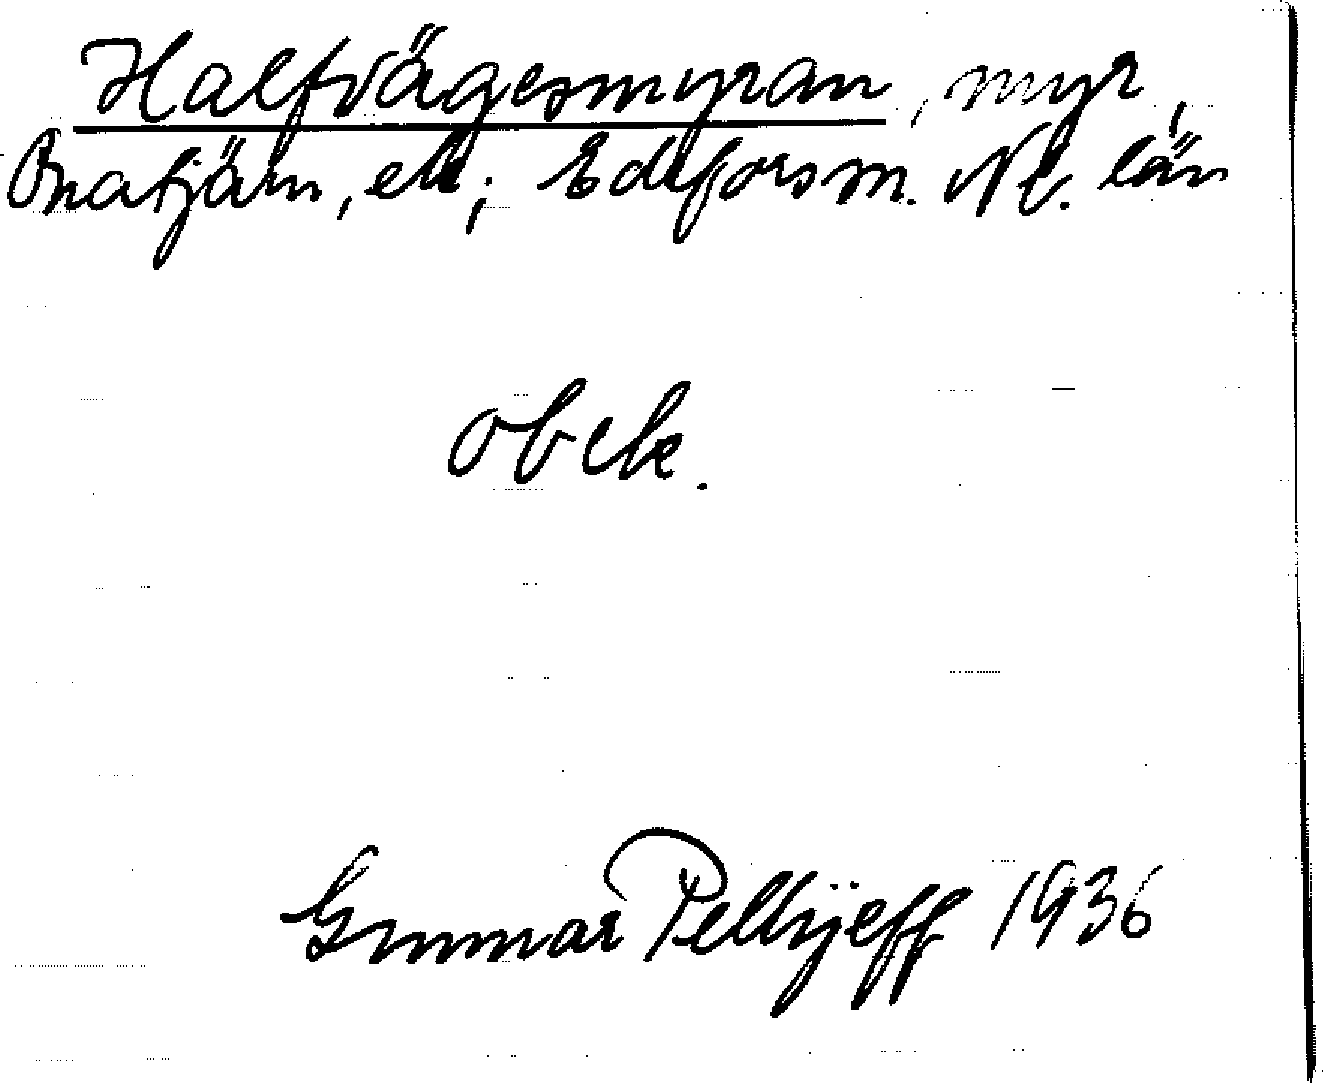 Halfvägesmyran, myr,
Bratjärn, ek; Edefors sn. Nb. län
obek.
Gunnar Pellijeff 1936